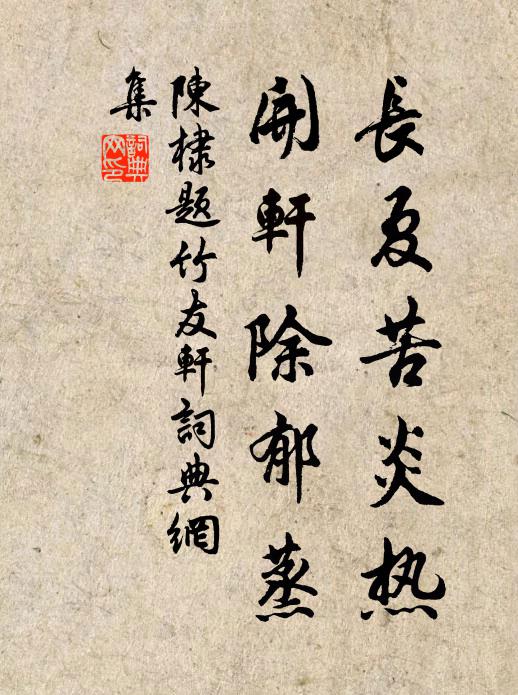 長夏苦炎热
開軒除郁蒸
陳棣题竹友軒詞典網
集
詞典網印